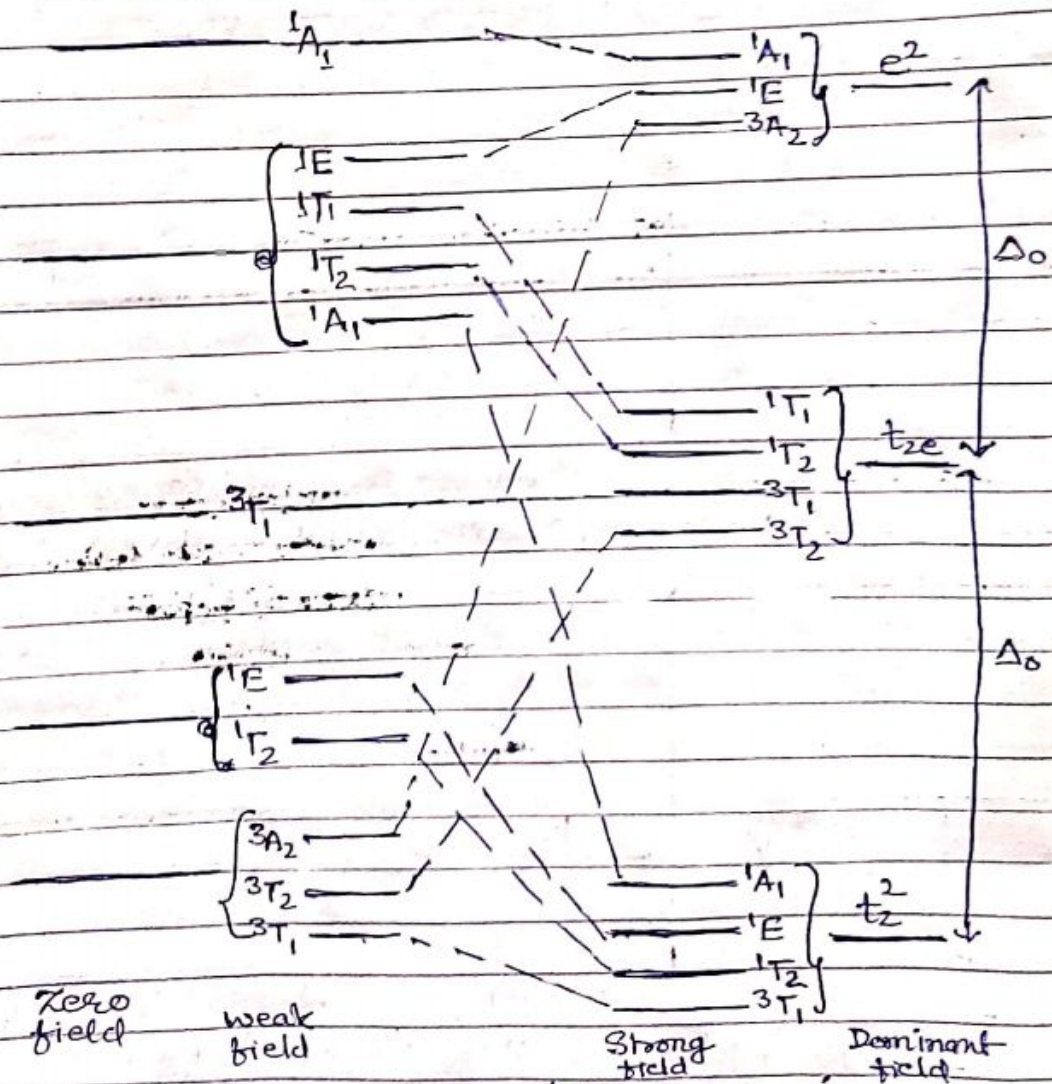 ¹A₁
¹A₁
e²
¹E
³A₂
¹E
¹T₁
¹T₂
¹A₁
Δ₀
¹T₁
¹T₂
t₂e
³T₁
³T₁
³T₂
¹E
¹T₂
Δ₀
³A₂
³T₂
³T₁
¹A₁
t₂²
¹E
¹T₂
³T₁
Zero
field
weak
field
Strong
field
Dominant
field